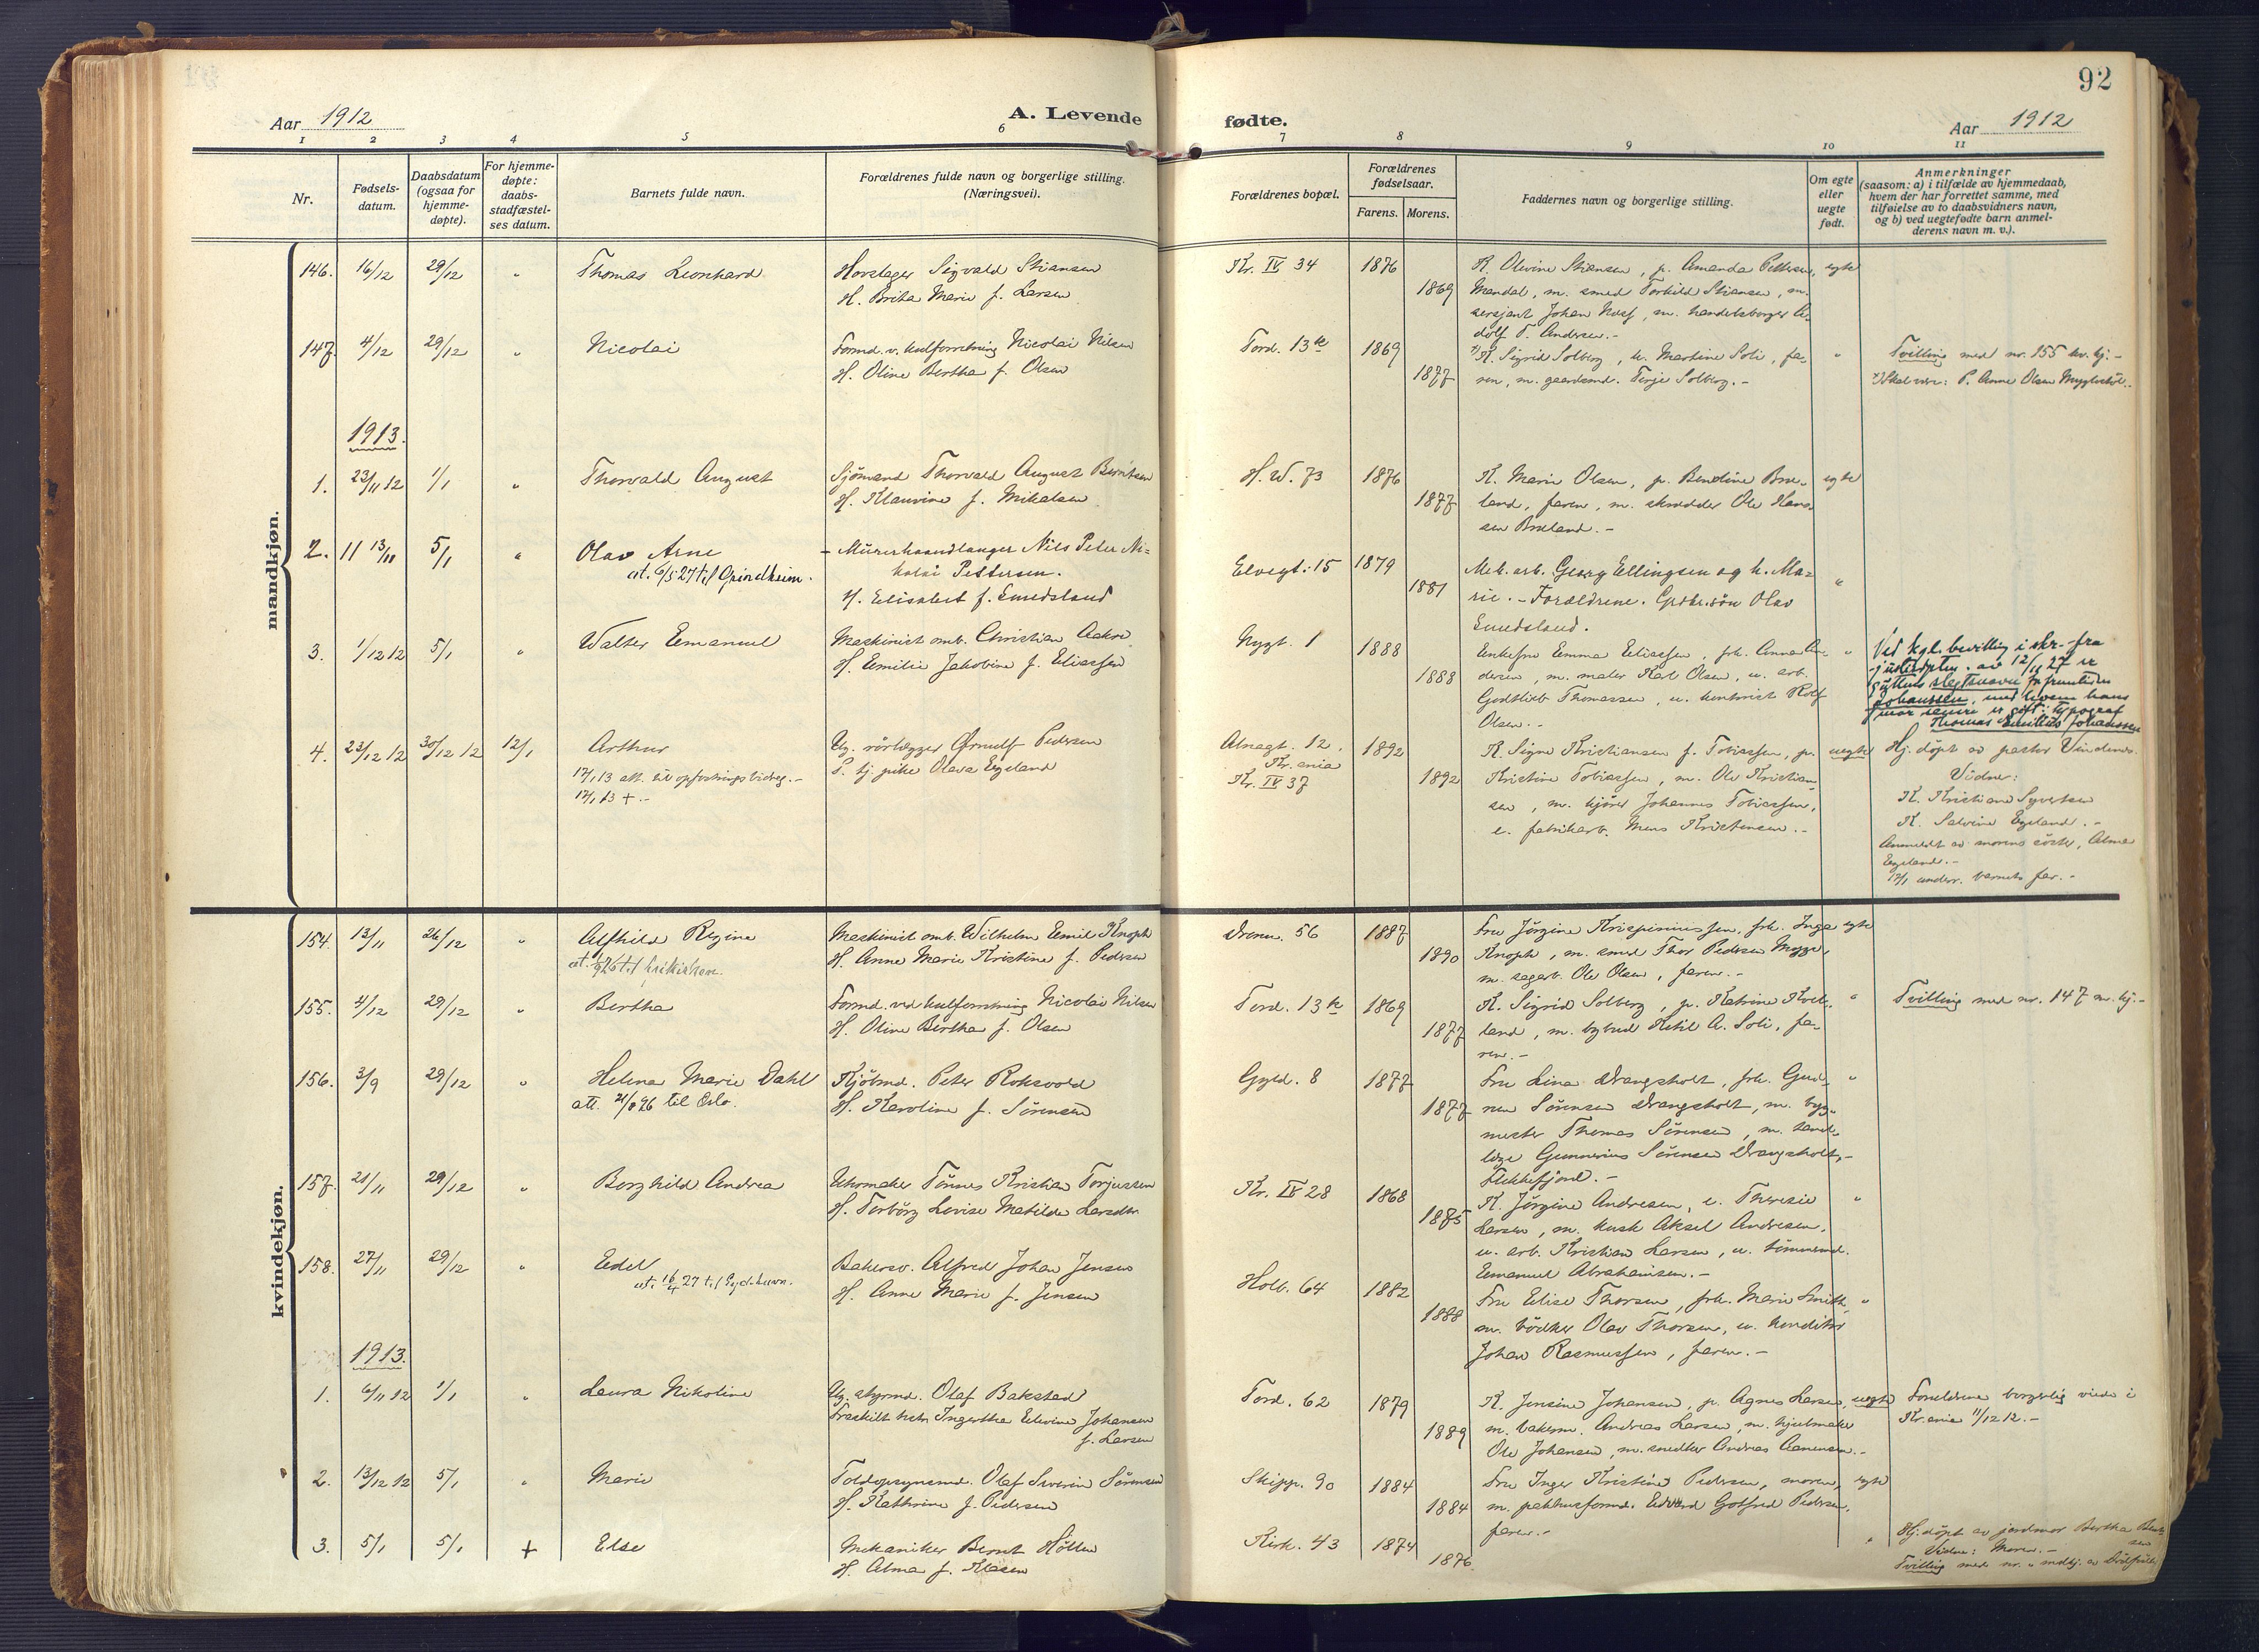 92
Aar 1912
A. Levende
fødte.
Aar 1912
1 2 3 4 5 6 7 8 9 10 11
Nr.
Fødsels-
datum.
Daabsdatum
(ogsaa for
hjemme-
døpte).
For hjemme-
døpte:
daabs-
stadfæstel-
ses datum.
Barnets fulde navn.
Forældrenes fulde navn og borgerlige stilling.
(Næringsvei).
Forældrenes bopæl.
Forældrenes
fødselsaar.
Farens. Morens.
Faddernes navn og borgerlige stilling.
Om egte
eller
uegte
født.
Anmerkninger
(saasom: a) i tilfælde av hjemmedaab,
hvem der har forrettet samme, med
tilføielse av to daabsvidners navn,
og b) ved uegtefødte barn anmel-
derens navn m. v.).
mandkjøn.
146. 16/12 29/12 „ Thomas Leonhard
Hovslager Sigvald Stiansen
H. Brita Marie f. Larsen
Kr. IV 34 1876
1869
K. Olivine Stiansen, p. Amanda Pettersen, egte
Mandal, m. smed Torkild Stiansen, m.
sersjant Johan , m. handelsborger A-
dolf T. Andersen.-
147. 4/12 29/12 „ Nicolai
Formd. v. kulforretning Nicolai Nilsen
H. Oline Bertha f. Olsen
Tord. 13 1869
1877
K. Sigrid Solberg, k. Martine Soli, fa-
ren, m. gaardsmd. Terje Solberg.-
Tvilling med nr. 155 kv. kj.-
Skal være: P. Anne Olsen
1913.
1. 23/11 12 1/1 „ Thorvald August
Sjömand Thorvald August Berntsen
H. Klaurine f. Mikalsen
H. W. 73 1876
1877
K. Marie Olsen, p. Bendine Bre-
land, faren, m. skrædder Ole Hans-
sen Breland.-
egte
2. 11 13/11 5/1 „ Olav Arne
at. 6/5 27 til Grindheim.
- Murerhaandlanger Nils Peter Ni-
kolai Pettersen.
H. Elisabet f. Smedsland
Elvegt: 15 1879
1881
Mek. arb. Georg Ellingsen og h. Ma-
rie. - Forældrene. Grdbr.sön Olav
Smedsland.
3. 1/12 12 5/1 „ Walter Emanuel
Maskinist omb. Christian Aakre
H. Emilie Jakobine f. Eliassen
Nygt. 1 1888
1888
Enkefru Emma Eliassen, frk. Anna An-
dersen, m. maler Karl Olsen, u. arb.
Godtlieb Thomassen, u. kontorist Rolf
Olsen.-
Ved kgl. bevilling i skr. fra
justisdptm. av 12/11 27 er
guttens slegtsnavn for fremtiden
Johanssen, med hvem hans
mor senere er gift: typograf
Thomas Emilius Johanssen
4. 23/12 12 30/12 12 12/1 Arthur
17/1 13 att. til opfostringsbidrag.-
17/1 13 +.-
Ug. rörlægger Ørnulf Pedersen
P. tj. pike Olava Egeland
12,
Kr.ania
Kr. IV 37
1892
1892
K. Signe Kristiansen f. Tobiassen, p. uegte
Kristine Tobiassen, m. Ole Kristian-
sen, m. kjörer Johannes Tobiassen,
u. fabrikarb. Mens Kristensen.-
Hj. döpt av pastor
Vidner:
K. Kristiane Syvertsen
K. Salvine Egeland.-
Anmeldt av morens söster, Alma
Egeland.-
12/1 underr. barnets far.-
kvindekjøn.
154. 13/11 26/12 „ Alfhild Regine
Maskinist omb. Wilhelm Emil Knoph
H. Anne Marie Kristine f. Pedersen
Dronn. 56 1887
1890
Fru Jörgine Krispinussen, frk. Inga egte
Knoph, m. smed Thor Pedersen Mygge,
m. sagarb. Ole Olsen, faren.-
155. 4/12 29/12 „ Bertha
Formd. ved kulforretning Nicolai Nilsen
H. Oline Bertha f. Olsen
Tord. 13 1869
1877
K. Sigrid Solberg, p. Katrine
land, m. bybud Ketil A. Soli, fa-
ren.-
Tvilling med nr. 147 m. kj.-
156. 3/9 29/12 „ Helena Marie Dahl
att. 21/8 26 til Oslo.
Kjöbmd. Peter Roksvold
H. Karoline f. Sörensen
Gyld. 8 1877
1877
Fru Lina Drangsholt, frk. Gud-
run Sörensen Drangsholt, m. byg-
mester Thomas Sörensen, m. tand-
læge Gunnerius Sörensen Drangsholt,-
Flekkefjord.-
157. 21/11 29/12 „ Borghild Andrea
Urmaker Tönnes Kristian Torjussen
H. Torborg Lovise Matilde Larsdtr
Kr. IV 28 1868
1875
K. Jörgine Andresen, u. Theresie
Larsen, m. kusk Aksel Andresen,
u. arb. Kristian Larsen, u. tömmermd.
Emanuel Abrahamsen.-
158. 27/11 29/12 „ Edel
at. 16/4 27 til
Bakersv. Alfred Johan Jensen
H. Anne Marie f. Jensen
Holb. 64 1882
1888
Fru Elise Thorsen, frk. Marie Smith,
m. bödker Olav Thorsen, u. konditor
Johan Rasmussen, faren.-
1913.
1. 6/11 12 1/1 „ Laura Nikoline
Ug. styrmd. Olaf Bakstad
Fraskilt hstr. Ingertha Elevine Johansen
f. Larsen
Tord. 62 1879
1889
K. Jensine Johansen, p. Agnes Larsen, uegte
m. bakerm. Andreas Larsen, m. hjulmaker
Ole Johansen, m. snedker Andreas Aanensen.-
Forældrene borgerlig viede i
Kr.ania 11/12 12.-
2. 13/12 12 5/1 „ Marie
Toldopsynsmd. Olaf Severin Sörensen
H. Kathrine f. Pedersen
Skipp. 90 1884
1884
Fru Inger Kristine Pedersen, moren, egte
m. pakhusformd. Edvard Gotfred Pedersen,
faren.-
3. 5/1 5/1 + Else
Mekaniker Bernt Hölten
H. Alma f. Klasen
Kirk. 43 1874
1876
Hj. döpt av jordmor Bertha
Vidne: Moren.-
Tvilling med nr. „ mdkj. av